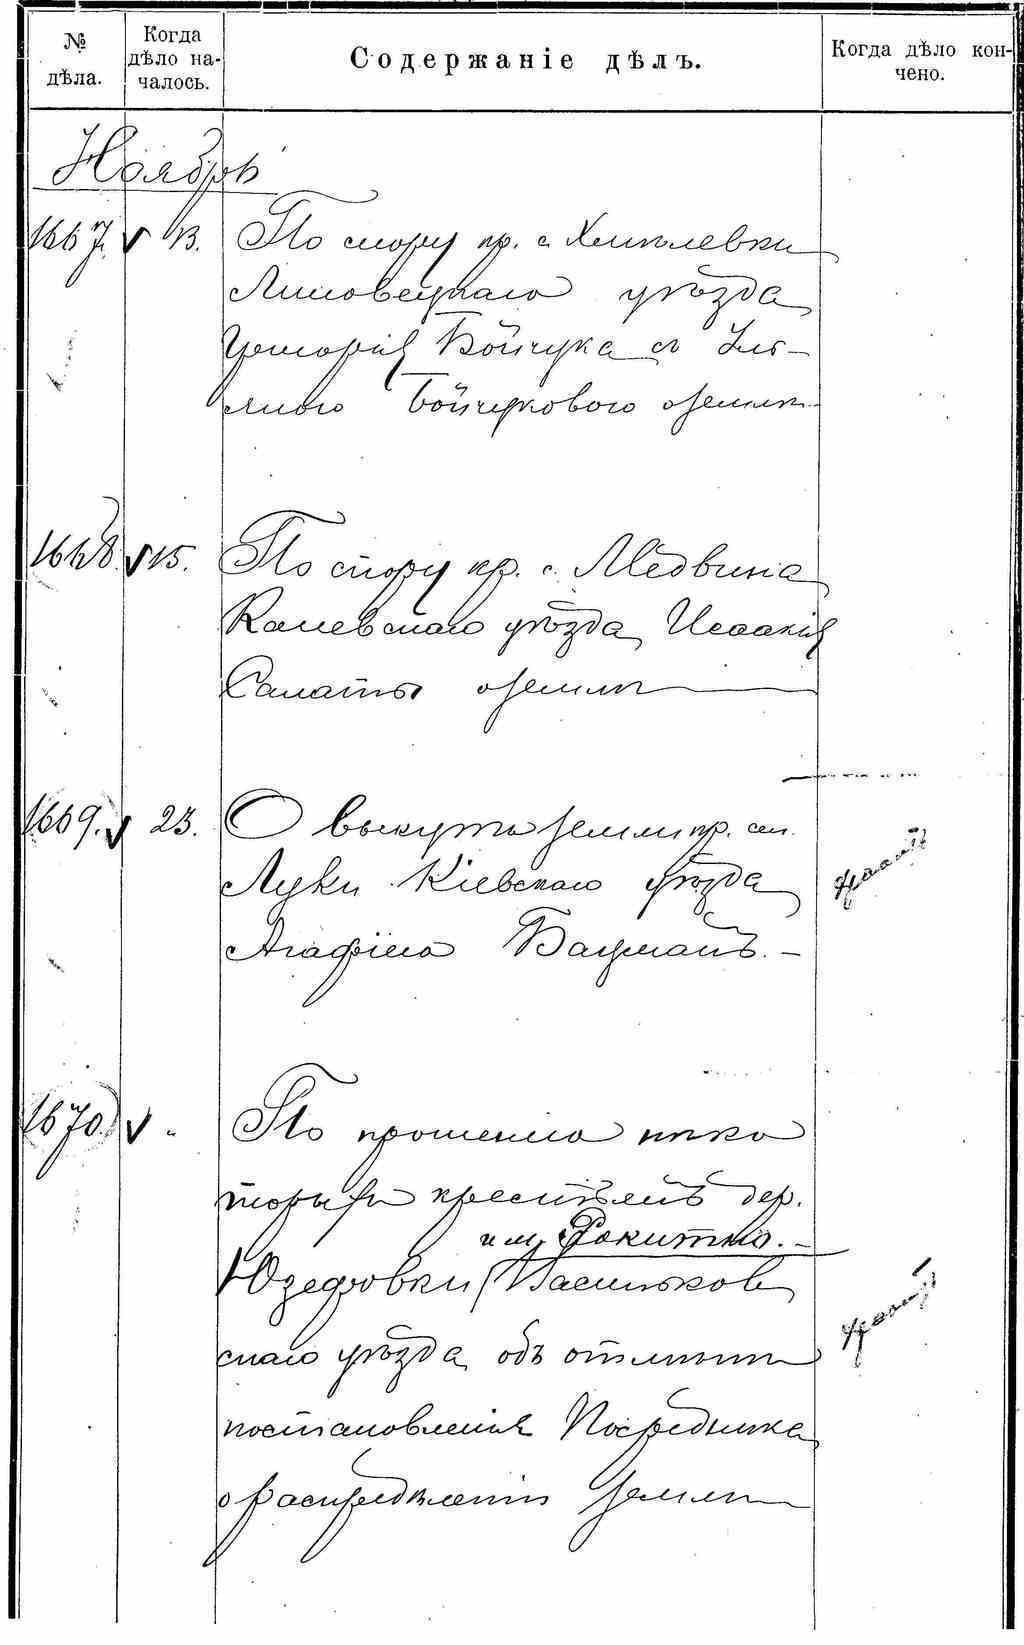 № дѣла.
Когда дѣло на-
чалось.
Содержаніе дѣлъ.
Когда дѣло кон-
чено.
Ноябрь
1667. 13. По спору кр. с.
Липовецкаго уѣзда
Григорія Бойчука съ
Бойчуковою о землѣ
1668. 15. По спору кр. с. Медвина
Каневскаго уѣзда Исаакія
Салаты о землѣ
1669. 23. О выкупѣ земли кр. сел.
Луки Кіевскаго уѣзда
Агафіею Бауманъ. —
1670. „ По прошенію нѣко
торыхъ крестьянъ дер.
им. Рокитно. —
Юзефовки Васильков
скаго уѣзда объ отмѣнѣ
постановленія Посредника
о распредѣленіи земли